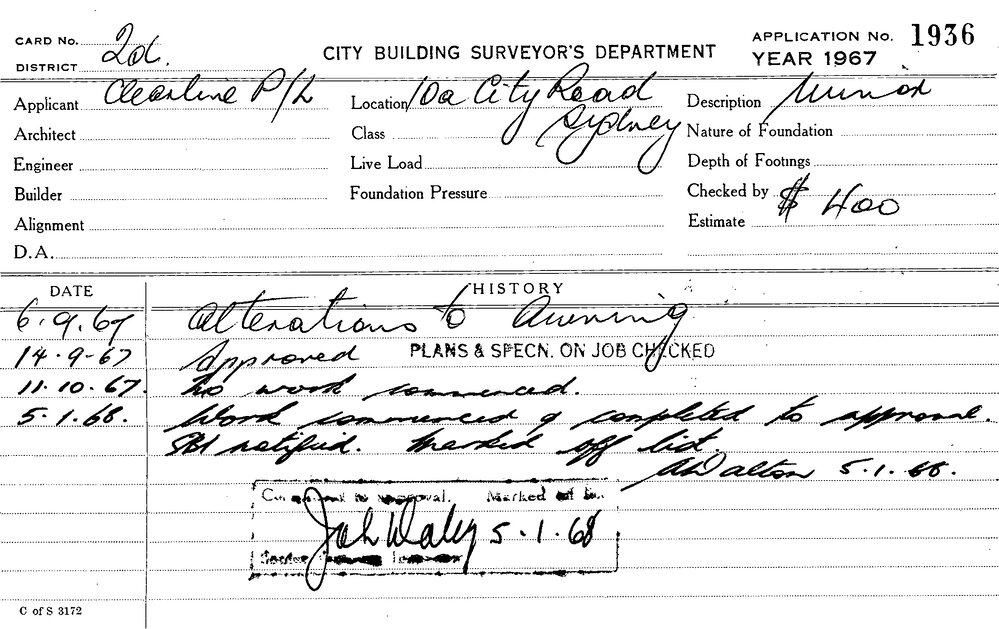 CARD No. 2d.
DISTRICT
CITY BUILDING SURVEYOR'S DEPARTMENT
APPLICATION No. 1936
YEAR 1967
Applicant Clearline P/L
Location 10a City Road
Sydney
Description Minor
Architect
Class
Nature of Foundation
Engineer
Live Load
Depth of Footings
Builder
Foundation Pressure
Checked by
Alignment
Estimate $ 400
D.A.
DATE HISTORY
6.9.67 Alterations to Awning
14-9-67 Approved PLANS & SPECN. ON JOB CHECKED
11.10.67. No work commenced.
5.1.68. Work commenced & completed to approval.
SBI notified. Marked off list.
AWalton 5.1.68.
approval. Marked off
5.1.68
C of S 3172